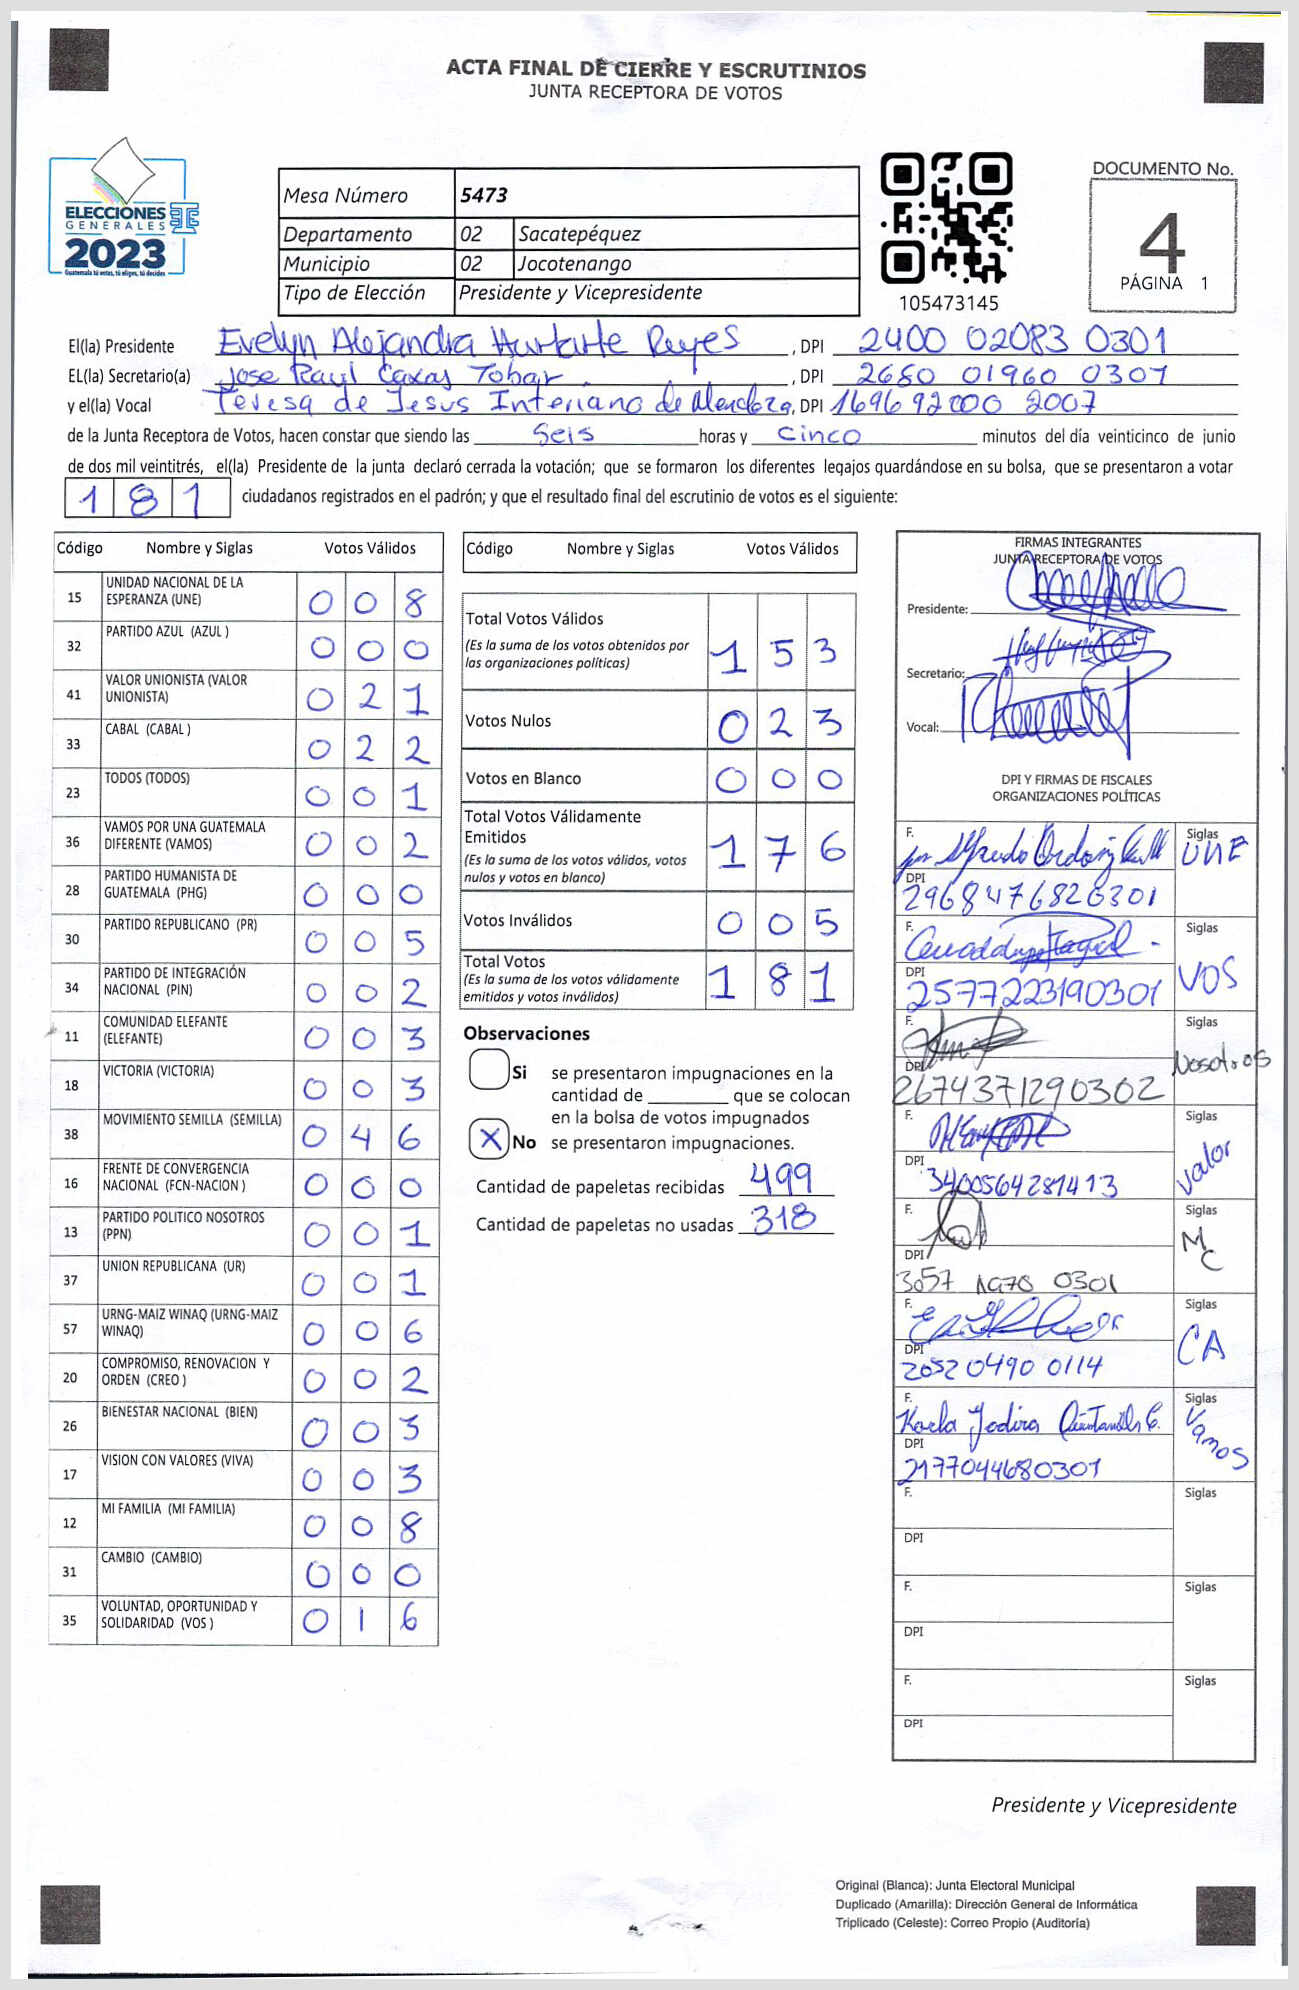 ACTA FINAL DE CIERRE Y ESCRUTINIOS
JUNTA RECEPTORA DE VOTOS
ELECCIONES
GENERALES
2023
Guatemala tú votas, tú eliges, tú decides
Mesa Número 5473
Departamento 02 Sacatepéquez
Municipio 02 Jocotenango
Tipo de Elección Presidente y Vicepresidente
105473145
DOCUMENTO No.
4
PÁGINA 1
El(la) Presidente Evelyn Alejandra Hurtarte Reyes, DPI 2400 02083 0301
EL(la) Secretario(a) Jose Raul Caxas Tobar, DPI 2680 01960 0301
y el(la) Vocal Teresa de Jesus Interiano de Mendoza, DPI 1696 92000 2007
de la Junta Receptora de Votos, hacen constar que siendo las seis horas y cinco minutos del día veinticinco de junio
de dos mil veintitrés, el(la) Presidente de la junta declaró cerrada la votación; que se formaron los diferentes legajos guardándose en su bolsa, que se presentaron a votar
181 ciudadanos registrados en el padrón; y que el resultado final del escrutinio de votos es el siguiente:
Código Nombre y Siglas Votos Válidos
15 UNIDAD NACIONAL DE LA ESPERANZA (UNE) 0 0 8
32 PARTIDO AZUL (AZUL ) 0 0 0
41 VALOR UNIONISTA (VALOR UNIONISTA) 0 2 1
33 CABAL (CABAL ) 0 2 2
23 TODOS (TODOS) 0 0 1
36 VAMOS POR UNA GUATEMALA DIFERENTE (VAMOS) 0 0 2
28 PARTIDO HUMANISTA DE GUATEMALA (PHG) 0 0 0
30 PARTIDO REPUBLICANO (PR) 0 0 5
34 PARTIDO DE INTEGRACIÓN NACIONAL (PIN) 0 0 2
11 COMUNIDAD ELEFANTE (ELEFANTE) 0 0 3
18 VICTORIA (VICTORIA) 0 0 3
38 MOVIMIENTO SEMILLA (SEMILLA) 0 4 6
16 FRENTE DE CONVERGENCIA NACIONAL (FCN-NACION ) 0 0 0
13 PARTIDO POLITICO NOSOTROS (PPN) 0 0 1
37 UNION REPUBLICANA (UR) 0 0 1
57 URNG-MAIZ WINAQ (URNG-MAIZ WINAQ) 0 0 6
20 COMPROMISO, RENOVACION Y ORDEN (CREO ) 0 0 2
26 BIENESTAR NACIONAL (BIEN) 0 0 3
17 VISION CON VALORES (VIVA) 0 0 3
12 MI FAMILIA (MI FAMILIA) 0 0 8
31 CAMBIO (CAMBIO) 0 0 0
35 VOLUNTAD, OPORTUNIDAD Y SOLIDARIDAD (VOS ) 0 1 6
Código Nombre y Siglas Votos Válidos
Total Votos Válidos 1 5 3
(Es la suma de los votos obtenidos por
las organizaciones políticas)
Votos Nulos 0 2 3
Votos en Blanco 0 0 0
Total Votos Válidamente
Emitidos 1 7 6
(Es la suma de los votos válidos, votos
nulos y votos en blanco)
Votos Inválidos 0 0 5
Total Votos 1 8 1
(Es la suma de los votos válidamente
emitidos y votos inválidos)
Observaciones
Si se presentaron impugnaciones en la
cantidad de ________ que se colocan
en la bolsa de votos impugnados
X No se presentaron impugnaciones.
Cantidad de papeletas recibidas 499
Cantidad de papeletas no usadas 318
FIRMAS INTEGRANTES
JUNTA RECEPTORA DE VOTOS
Presidente:
Secretario:
Vocal:
DPI Y FIRMAS DE FISCALES
ORGANIZACIONES POLÍTICAS
F. Siglas UNE
DPI 2968476820301
F. Siglas VOS
DPI 2577223190301
F. Siglas Nosotros
DPI 2674371290302
F. Siglas Valor
DPI 3400564281413
F. Siglas MC
DPI 3057 0301
F. Siglas CA
DPI 2052 0490 0114
F. Karla Siglas Vamos
DPI 2177044680301
F. Siglas
DPI
F. Siglas
DPI
F. Siglas
DPI
Presidente y Vicepresidente
Original (Blanca): Junta Electoral Municipal
Duplicado (Amarilla): Dirección General de Informática
Triplicado (Celeste): Correo Propio (Auditoría)